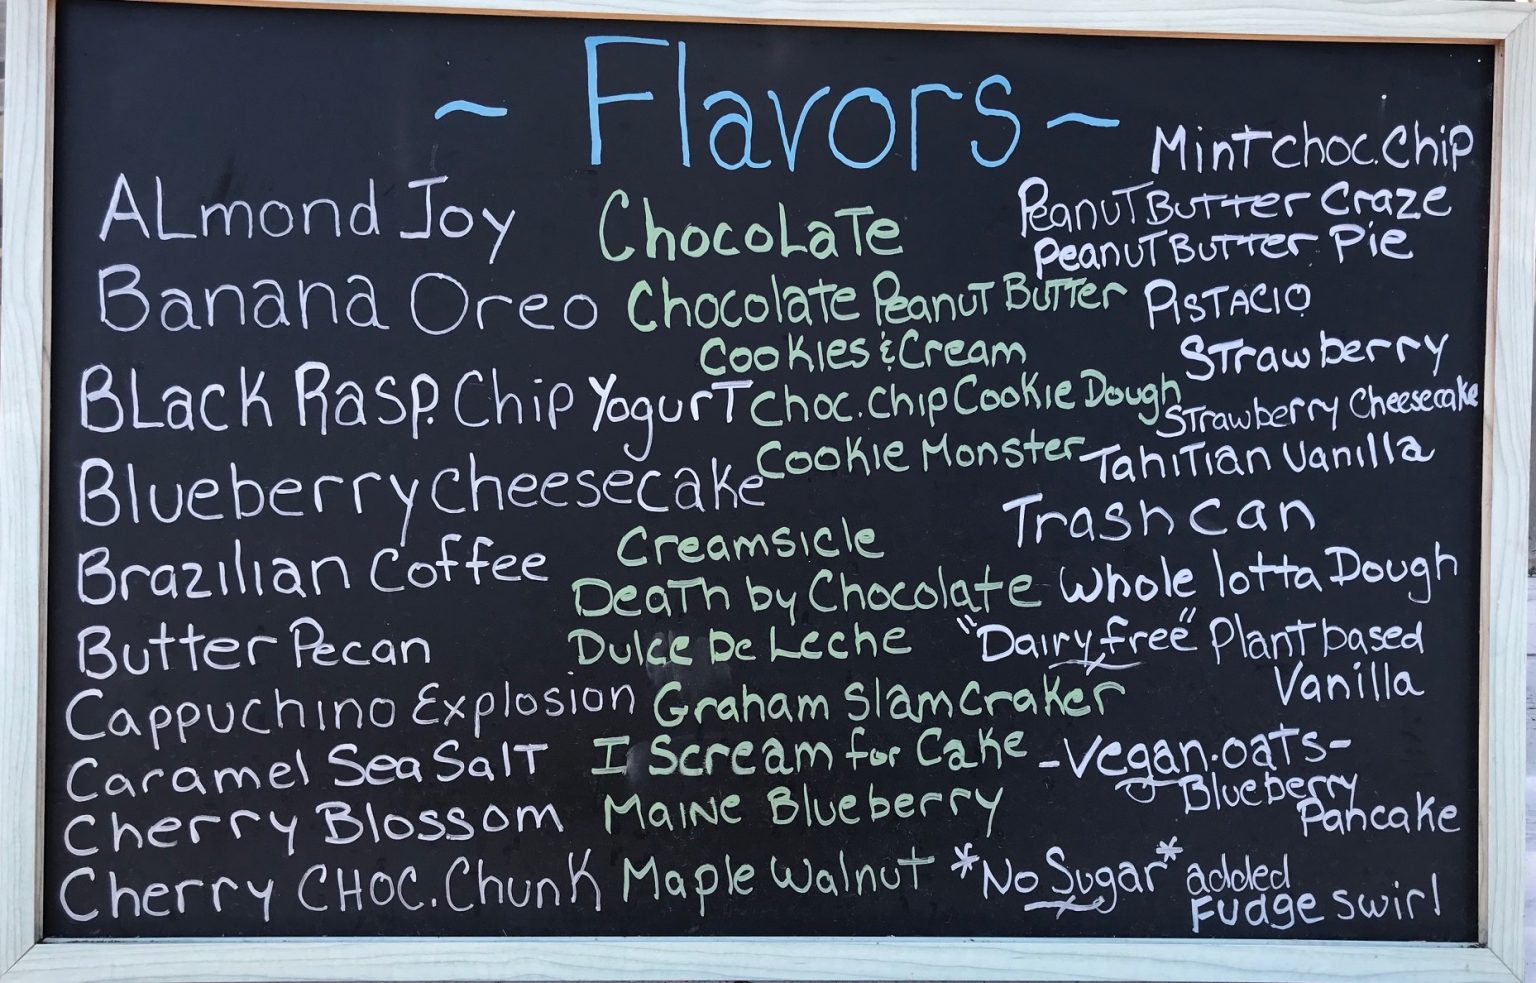 ~ Flavors ~
Almond Joy
Banana Oreo
Black Rasp. Chip Yogurt
Blueberry cheesecake
Brazilian Coffee
Butter Pecan
Cappuchino Explosion
Caramel Sea Salt
Cherry Blossom
Cherry CHOC. Chunk
Chocolate
Chocolate Peanut Butter
Cookies & Cream
Choc. Chip Cookie Dough
Cookie Monster
Creamsicle
Death by Chocolate
Dulce De Leche
Graham Slam Craker
I Scream for Cake
Maine Blueberry
Maple Walnut
Mint choc. Chip
Peanut Butter Craze
Peanut Butter Pie
Pistacio
Strawberry
Strawberry Cheesecake
Tahitian Vanilla
Trash can
Whole lotta Dough
"Dairy free" Plant based
Vanilla
-Vegan. oats-
Blueberry
Pancake
*No Sugar* added
Fudge swirl